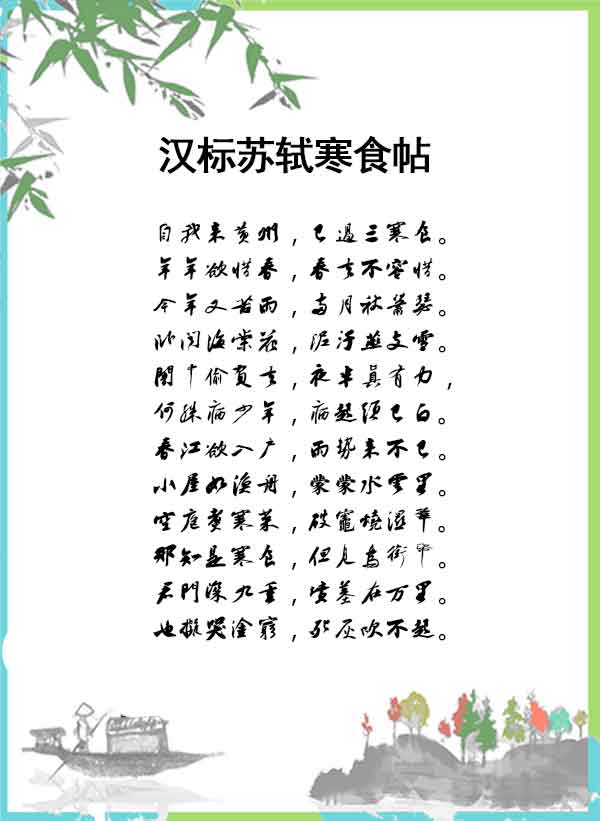 汉标苏轼寒食帖
自我来黄州，已過三寒食。
年年欲惜春，春去不容惜。
今年又苦雨，两月秋萧瑟。
卧闻海棠花，泥污燕支雪。
闇中偷負去，夜半真有力，
何殊病少年，病起须已白。
春江欲入户，雨势来不已。
小屋如渔舟，蒙蒙水雲里。
空庖煮寒菜，破竈燒湿葦。
那知是寒食，但见烏銜帋。
君門深九重，墳墓在万里。
也擬哭塗窮，死灰吹不起。